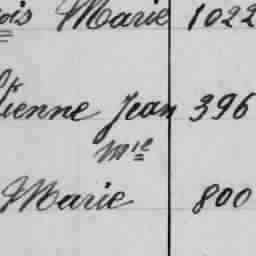 ois Marie 1022
tienne Jean 396
Mie
Marie 800